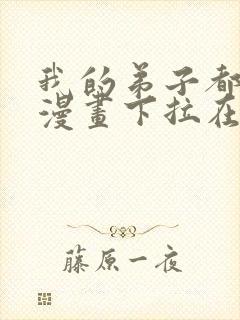 我的弟子都
漫畫下拉在
藤原一夜